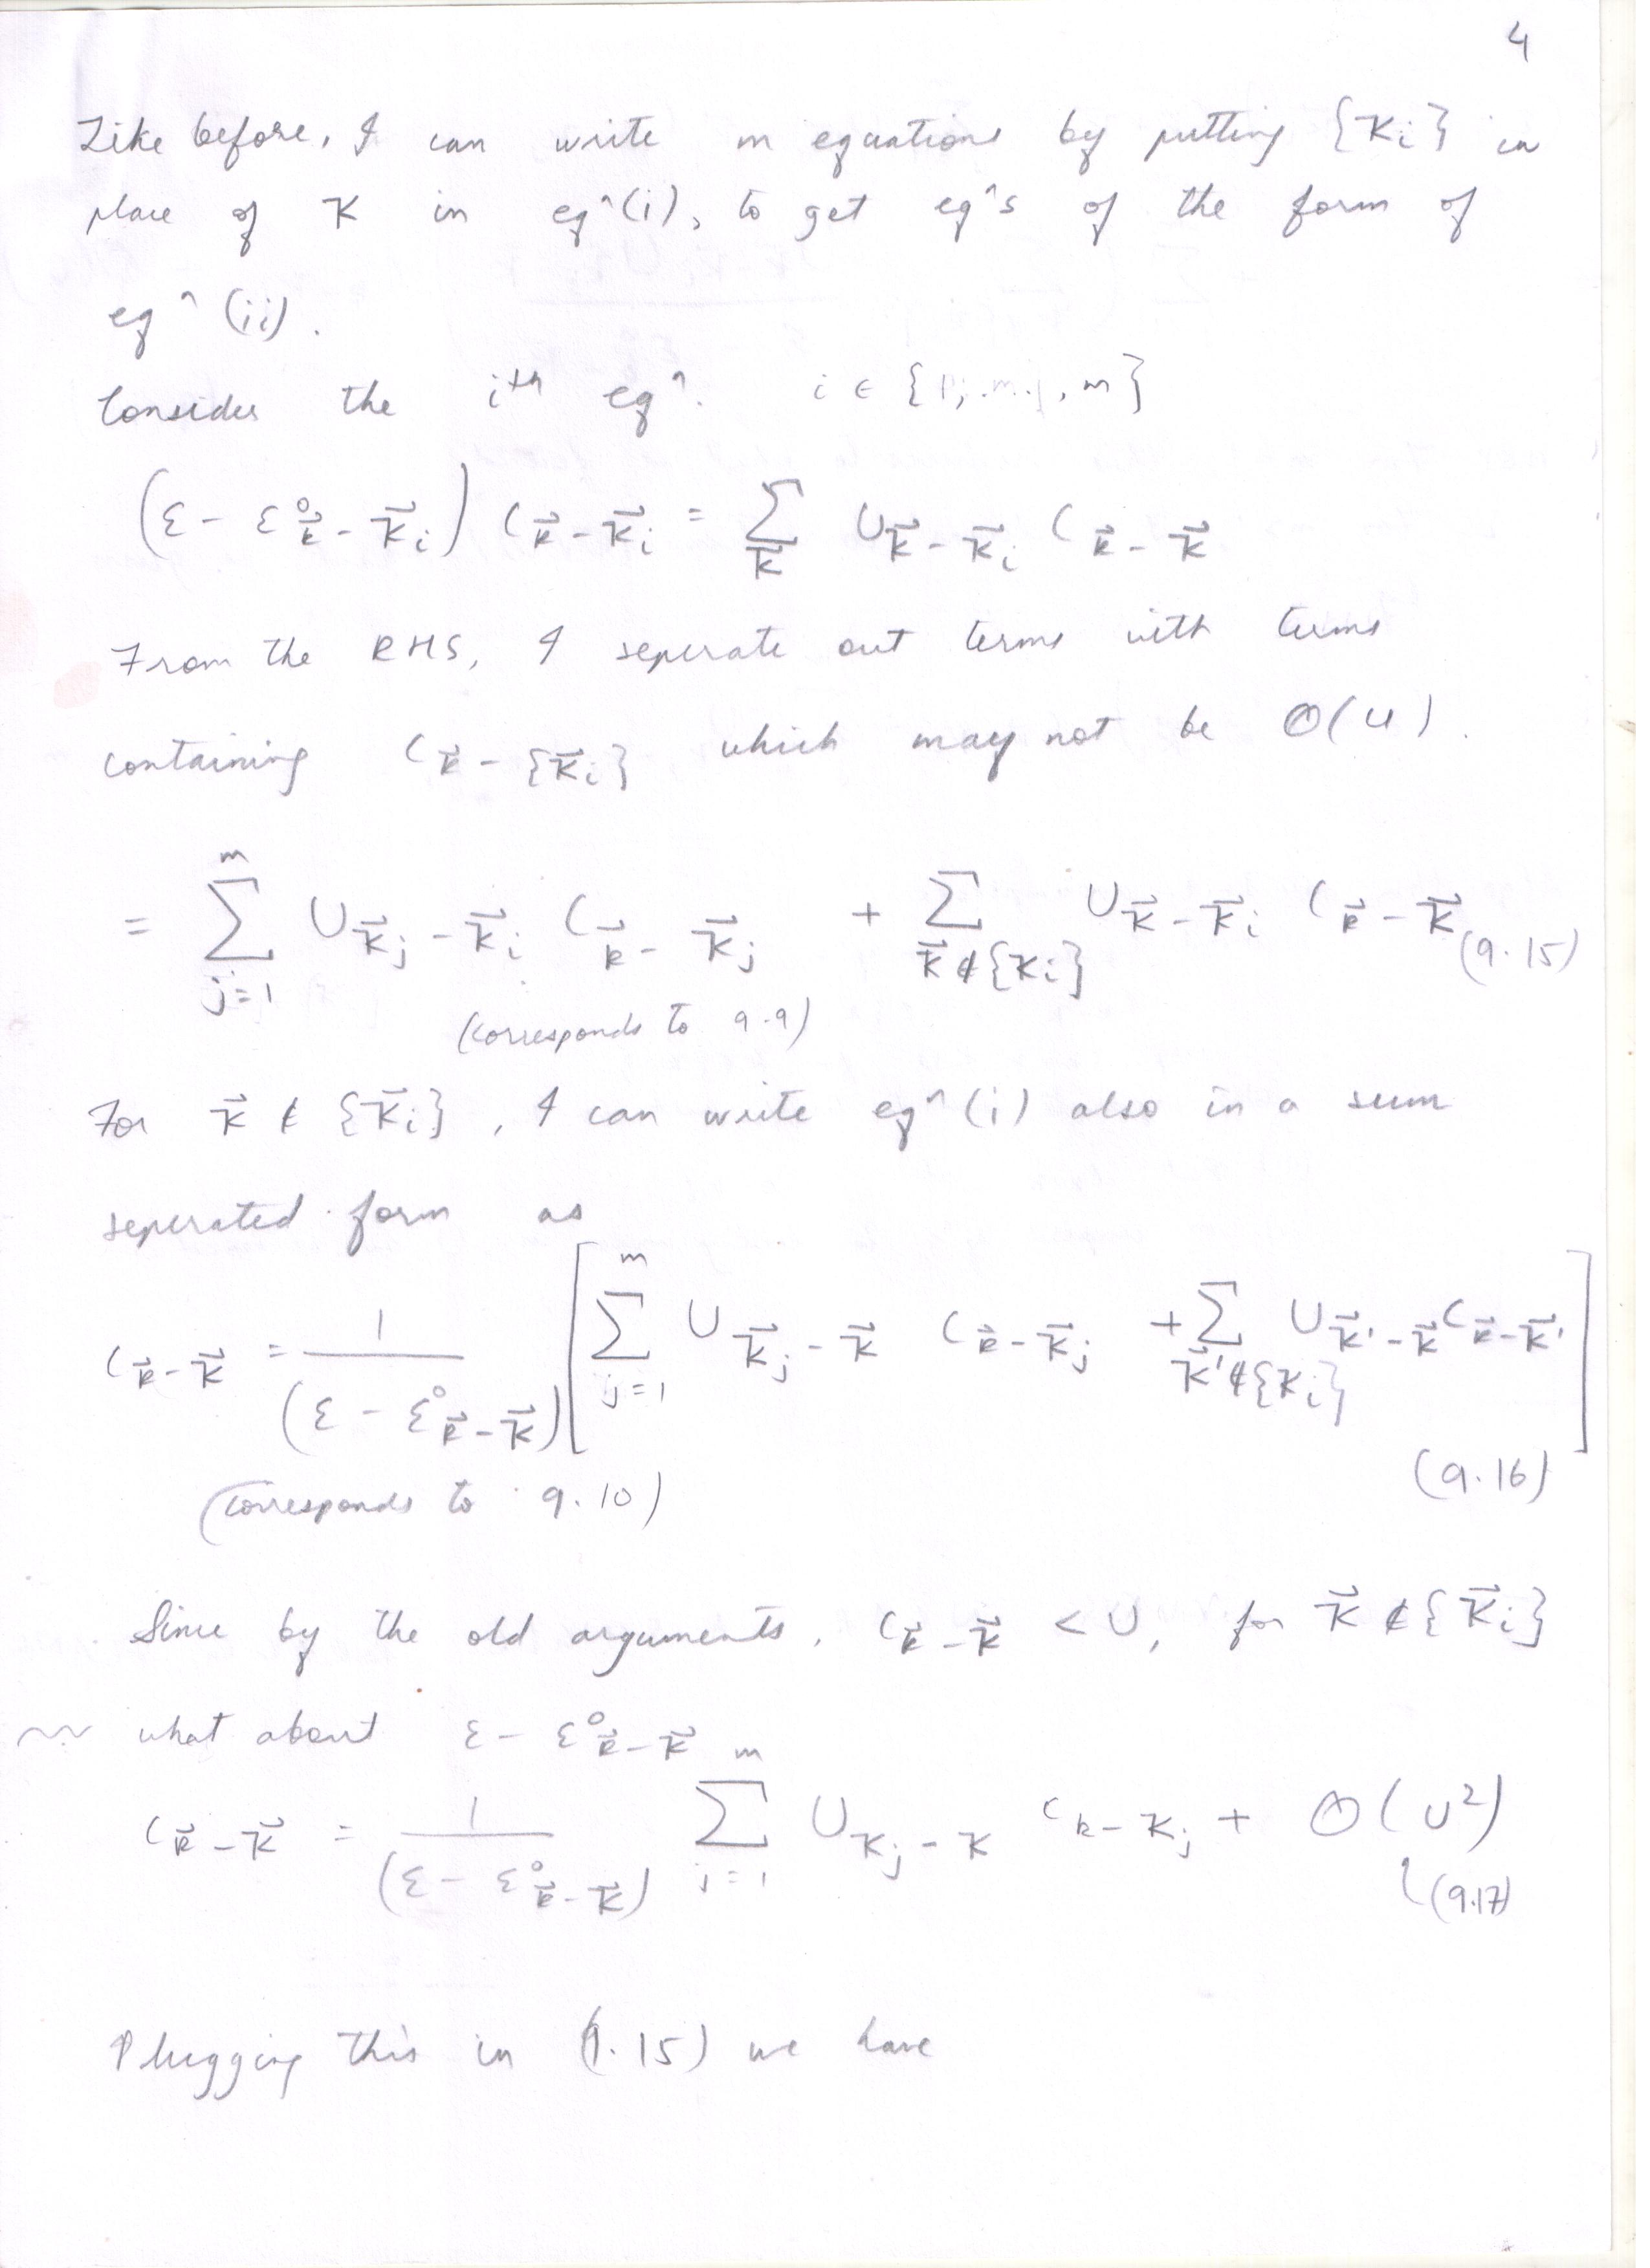 4
Like before, I can write m equations by putting {K_i} in
place of K in eq^n (i), to get eq^ns of the form of
eq^n (ii).
Consider the i^th eq^n. i ∈ {1, ..., m}
(ε - ε⁰_{k⃗ - K⃗_i}) C_{k⃗ - K⃗_i} = Σ_{K⃗} U_{K⃗ - K⃗_i} C_{k⃗ - K⃗}
From the RHS, I seperate out terms with terms
containing C_{k⃗ - {K⃗_i}} which may not be O(U).
= Σ_{j=1}^{m} U_{K⃗_j - K⃗_i} C_{k⃗ - K⃗_j} + Σ_{K⃗ ∉ {K_i}} U_{K⃗ - K⃗_i} C_{k⃗ - K⃗} (9.15)
(corresponds to 9.9)
For K⃗ ∉ {K⃗_i}, I can write eq^n (i) also in a sum
seperated form as
C_{k⃗ - K⃗} = 1/(ε - ε⁰_{k⃗ - K⃗}) [Σ_{j=1}^{m} U_{K⃗_j - K⃗} C_{k⃗ - K⃗_j} + Σ_{K⃗' ∉ {K_i}} U_{K⃗' - K⃗} C_{k⃗ - K⃗'}]
(9.16)
(corresponds to 9.10)
Since by the old arguments, C_{k⃗ - K⃗} < U, for K⃗ ∉ {K⃗_i}
~~ what about ε - ε⁰_{k⃗ - K⃗}
C_{k⃗ - K⃗} = 1/(ε - ε⁰_{k⃗ - K⃗}) Σ_{j=1}^{m} U_{K_j - K} C_{k - K_j} + O(U²)
(9.17)
Plugging this in (9.15) we have